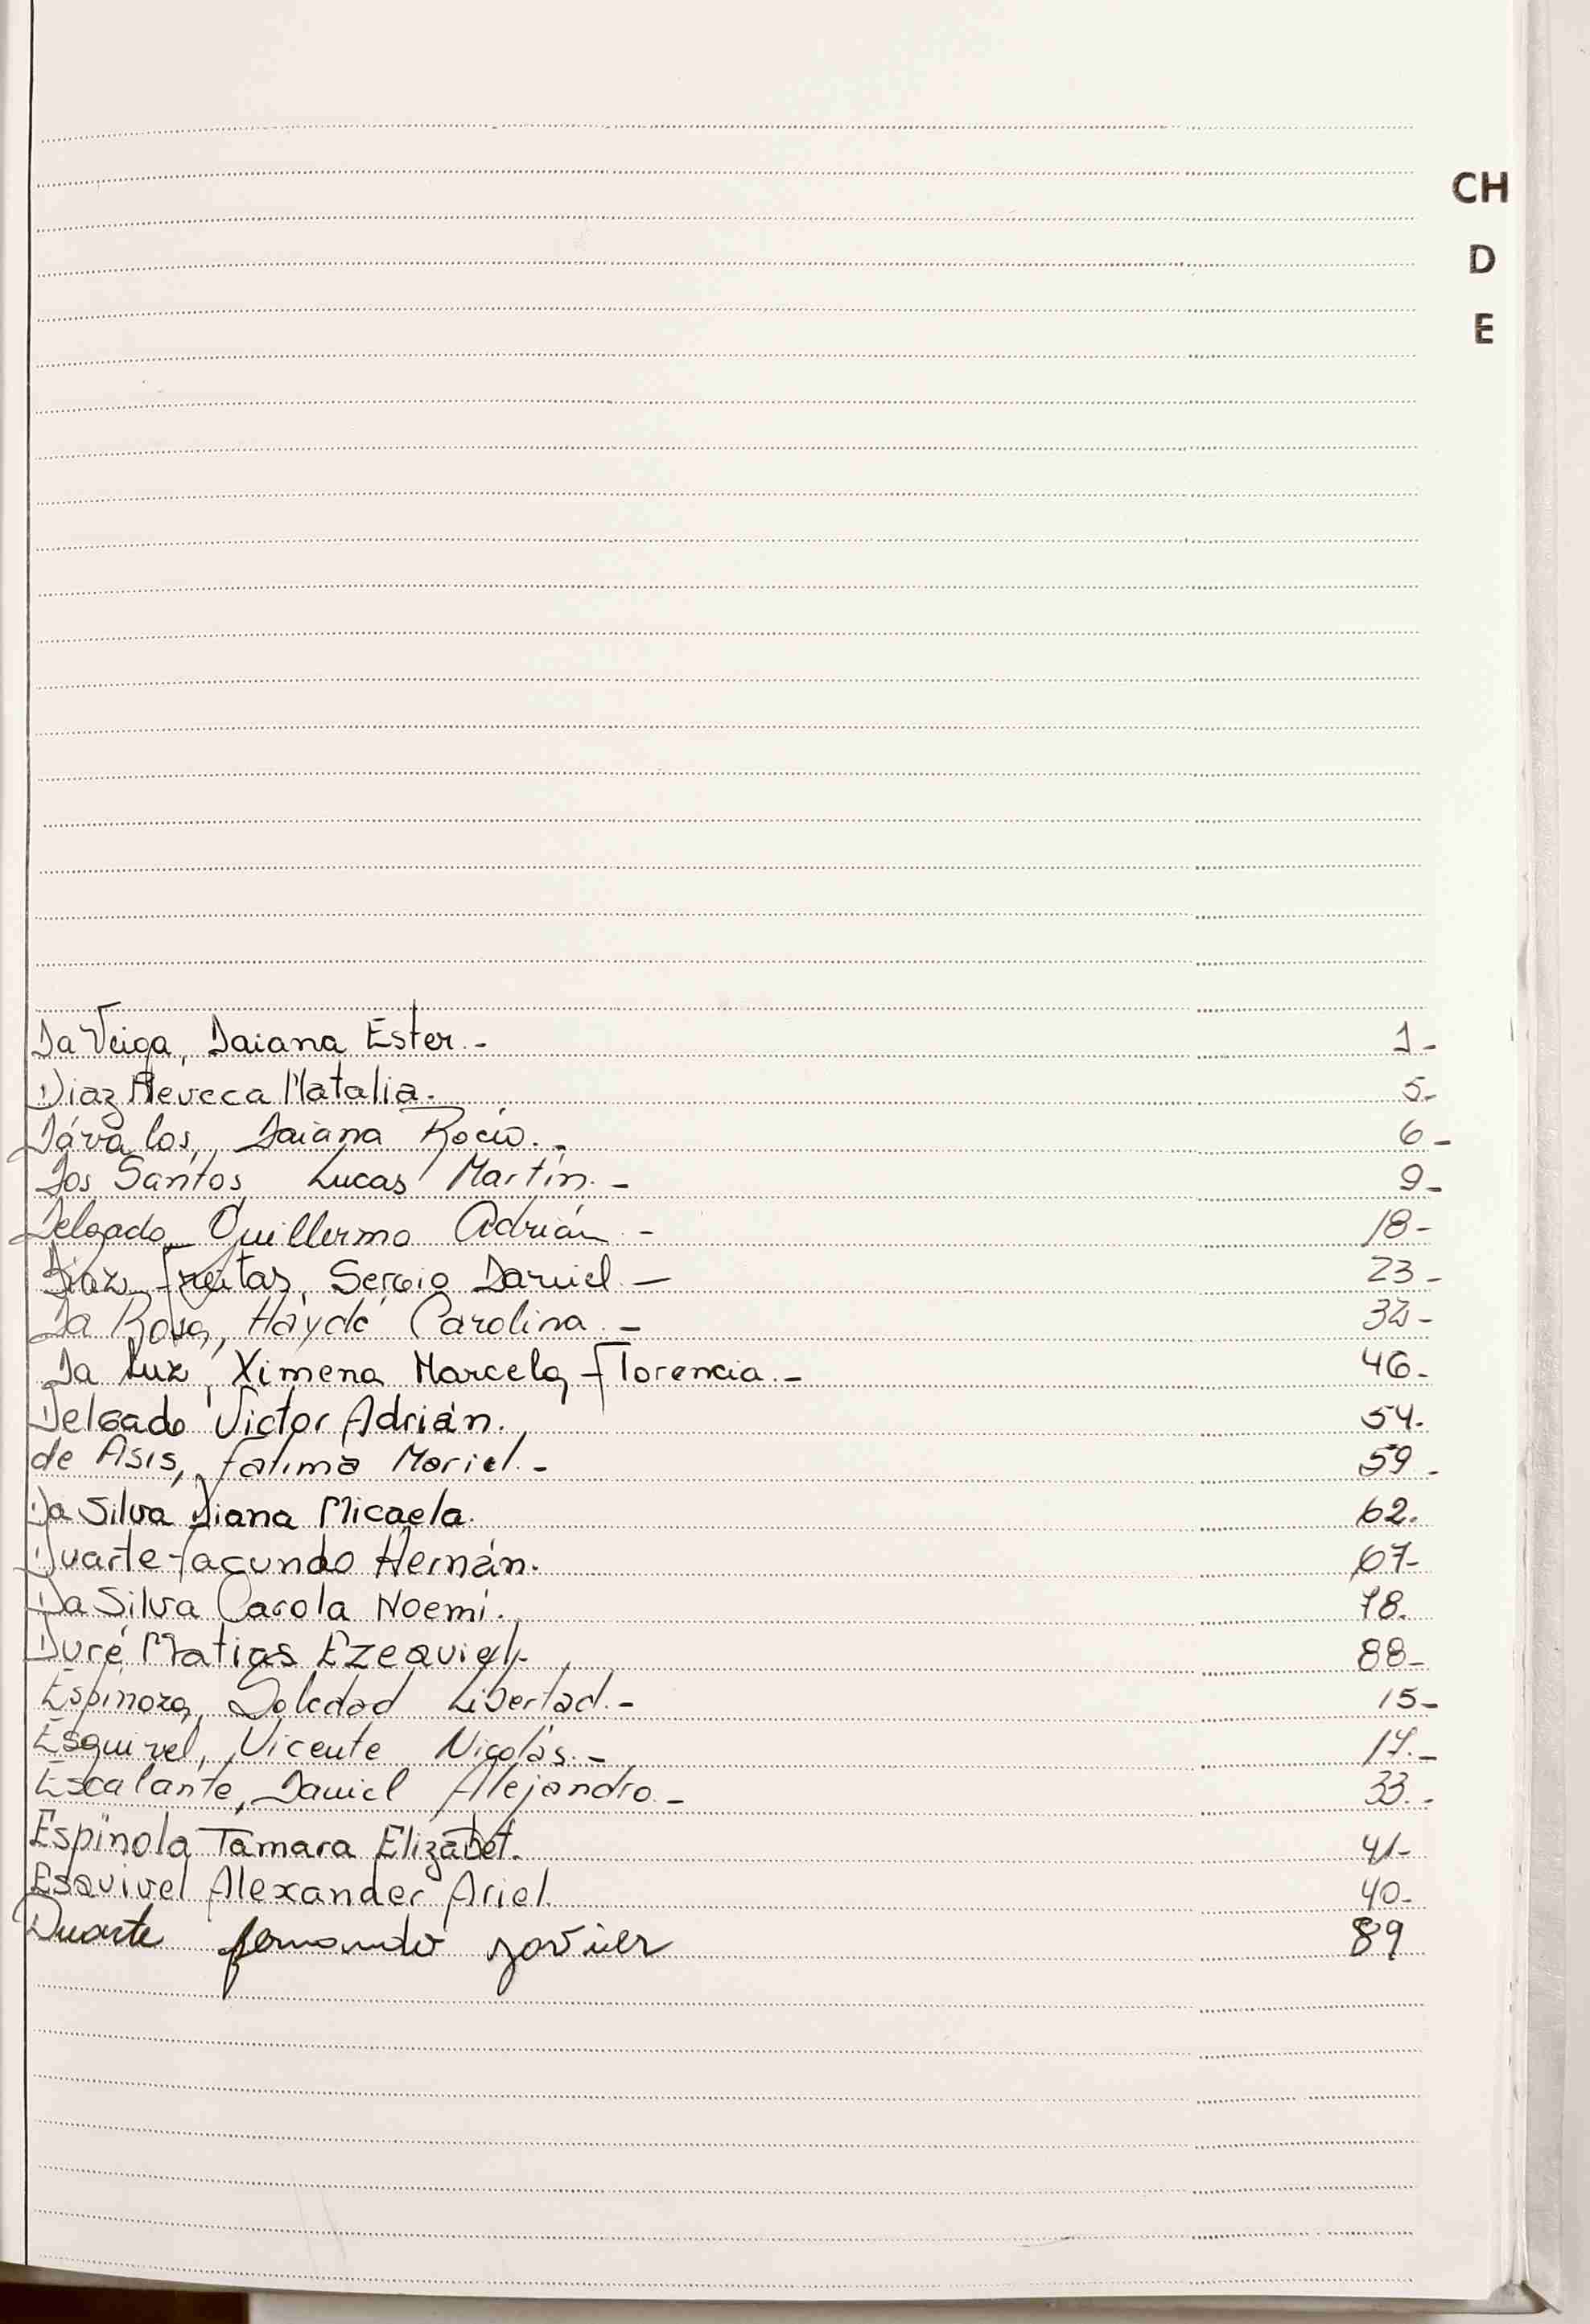 CH
D
E
Da Veiga, Daiana Ester.- 1-
Diaz Reveca Natalia. 5-
Dávalos, Daiana Rocío.- 6-
Dos Santos Lucas Martín.- 9-
Delgado Guillermo Adrián - 18-
Diaz Freitas, Sergio Daniel.- 23-
Da Rosa, Haydé Carolina.- 32-
Da Luz, Ximena Marcela Florencia.- 46-
Delgado Victor Adrián. 54.
de Asis, Fatima Mariel.- 59-
Da Silva Diana Micaela. 62.
Duarte Facundo Hernán. 67-
Da Silva Carola Noemí. 78.
Duré Matias Ezequiel.- 88-
Espinoza, Soledad Libertad.- 15-
Esquivel, Vicente Nicolás.- 17.-
Escalante, Daniel Alejandro.- 33.-
Espínola Tamara Elizabet. 41-
Esquivel Alexander Ariel. 40-
Duarte fernando javier 89